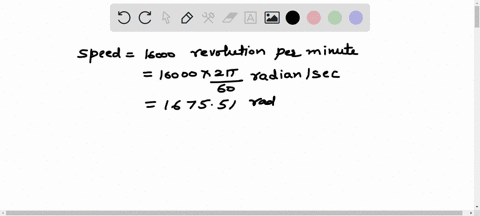 speed = 16000 revolution per minute
= 16000 × 2π/60 radian/sec
= 1675.51 rad